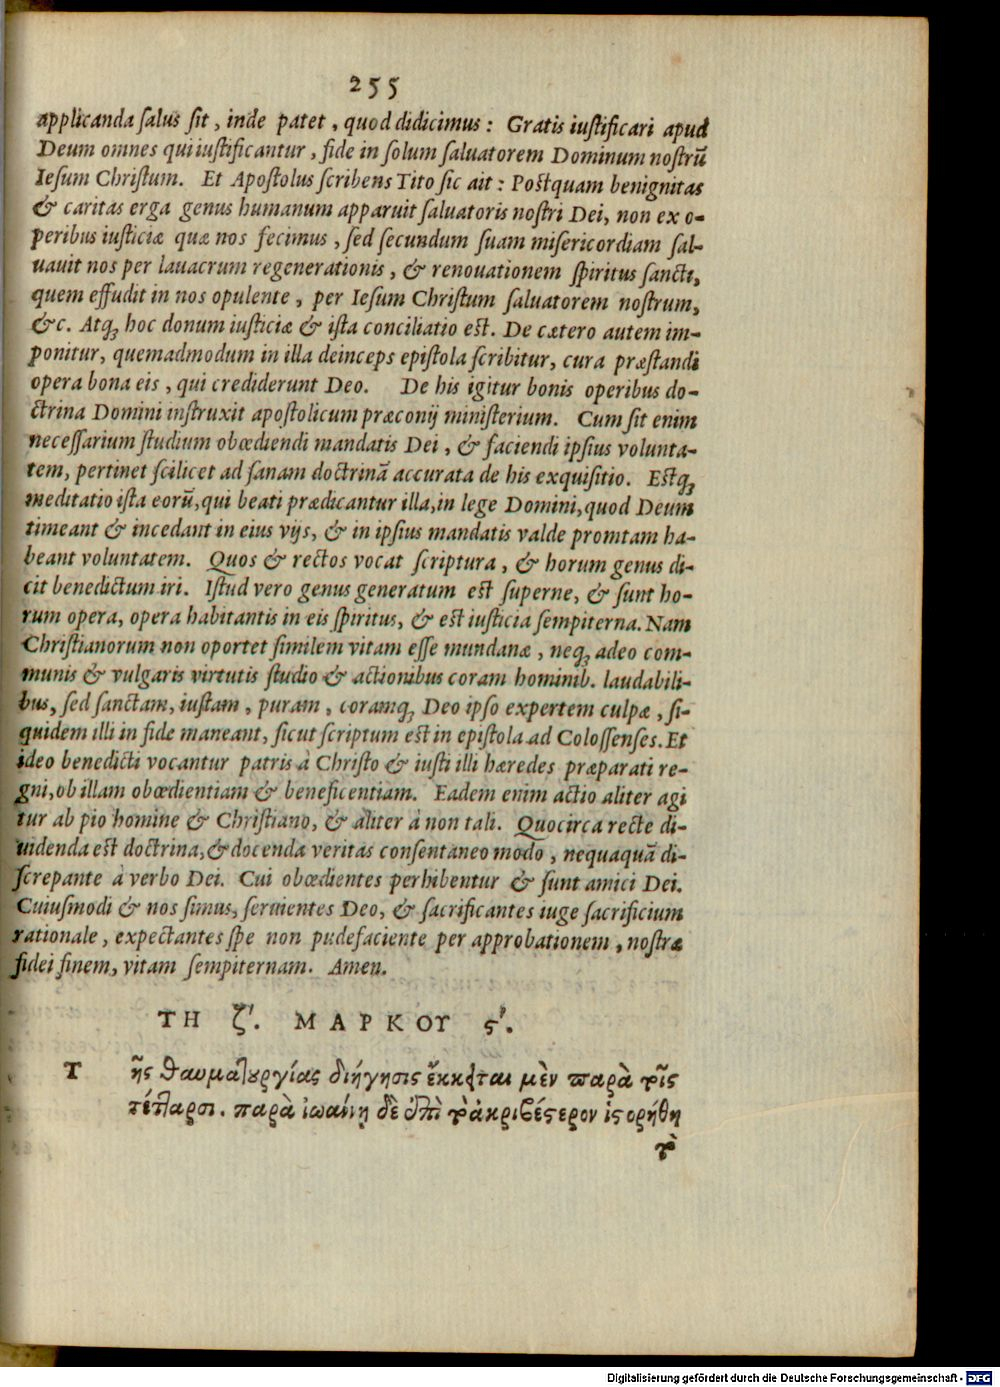 255
applicanda ſalus ſit, inde patet, quod didicimus: Gratis iuſtificari apud
Deum omnes qui iuſtificantur, fide in ſolum ſaluatorem Dominum noſtrũ
Ieſum Chriſtum. Et Apoſtolus ſcribens Tito ſic ait: Poſtquam benignitas
& caritas erga genus humanum apparuit ſaluatoris noſtri Dei, non ex o-
peribus iuſticiæ quæ nos fecimus, ſed ſecundum ſuam miſericordiam ſal-
uauit nos per lauacrum regenerationis, & renouationem ſpiritus ſancti,
quem effudit in nos opulente, per Ieſum Chriſtum ſaluatorem noſtrum,
&c. Atq; hoc donum iuſticiæ & iſta conciliatio eſt. De cætero autem im-
ponitur, quemadmodum in illa deinceps epiſtola ſcribitur, cura præſtandi
opera bona eis, qui crediderunt Deo. De his igitur bonis operibus do-
ctrina Domini inſtruxit apoſtolicum præconij miniſterium. Cum ſit enim
neceſſarium ſtudium obœdiendi mandatis Dei, & faciendi ipſius volunta-
tem, pertinet ſcilicet ad ſanam doctrinã accurata de his exquiſitio. Eſtq;
meditatio iſta eorũ, qui beati prædicantur illa, in lege Domini, quod Deum
timeant & incedant in eius vijs, & in ipſius mandatis valde promtam ha-
beant voluntatem. Quos & rectos vocat ſcriptura, & horum genus di-
cit benedictum iri. Iſtud vero genus generatum eſt ſuperne, & ſunt ho-
rum opera, opera habitantis in eis ſpiritus, & eſt iuſticia ſempiterna. Nam
Chriſtianorum non oportet ſimilem vitam eſſe mundanæ, neq; adeo com-
munis & vulgaris virtutis ſtudio & actionibus coram hominib. laudabili-
bus, ſed ſanctam, iuſtam, puram, coramq; Deo ipſo expertem culpæ, ſi-
quidem illi in fide maneant, ſicut ſcriptum eſt in epiſtola ad Coloſſenſes. Et
ideo benedicti vocantur patris à Chriſto & iuſti illi hæredes præparati re-
gni, ob illam obœdientiam & beneficentiam. Eadem enim actio aliter agi
tur ab pio homine & Chriſtiano, & aliter à non tali. Quocirca recte di-
uidenda eſt doctrina, & docenda veritas conſentaneo modo, nequaquã di-
ſcrepante à verbo Dei. Cui obœdientes perhibentur & ſunt amici Dei.
Cuiuſmodi & nos ſimus, ſeruientes Deo, & ſacrificantes iuge ſacrificium
rationale, expectantes ſpe non pudefaciente per approbationem, noſtræ
fidei finem, vitam ſempiternam. Amen.
ΤΗ ζʹ. ΜΑΡΚΟΥ ϛʹ.
Τῆς θαυματουργίας διήγησις ἔκκειται μὲν παρὰ τοῖς
τέτταρσι. παρὰ ἰωάννῃ δὲ ἐπὶ τὸ ἀκριβέστερον ἱστορήθη
τὸ
Digitalisierung gefördert durch die Deutsche Forschungsgemeinschaft - DFG